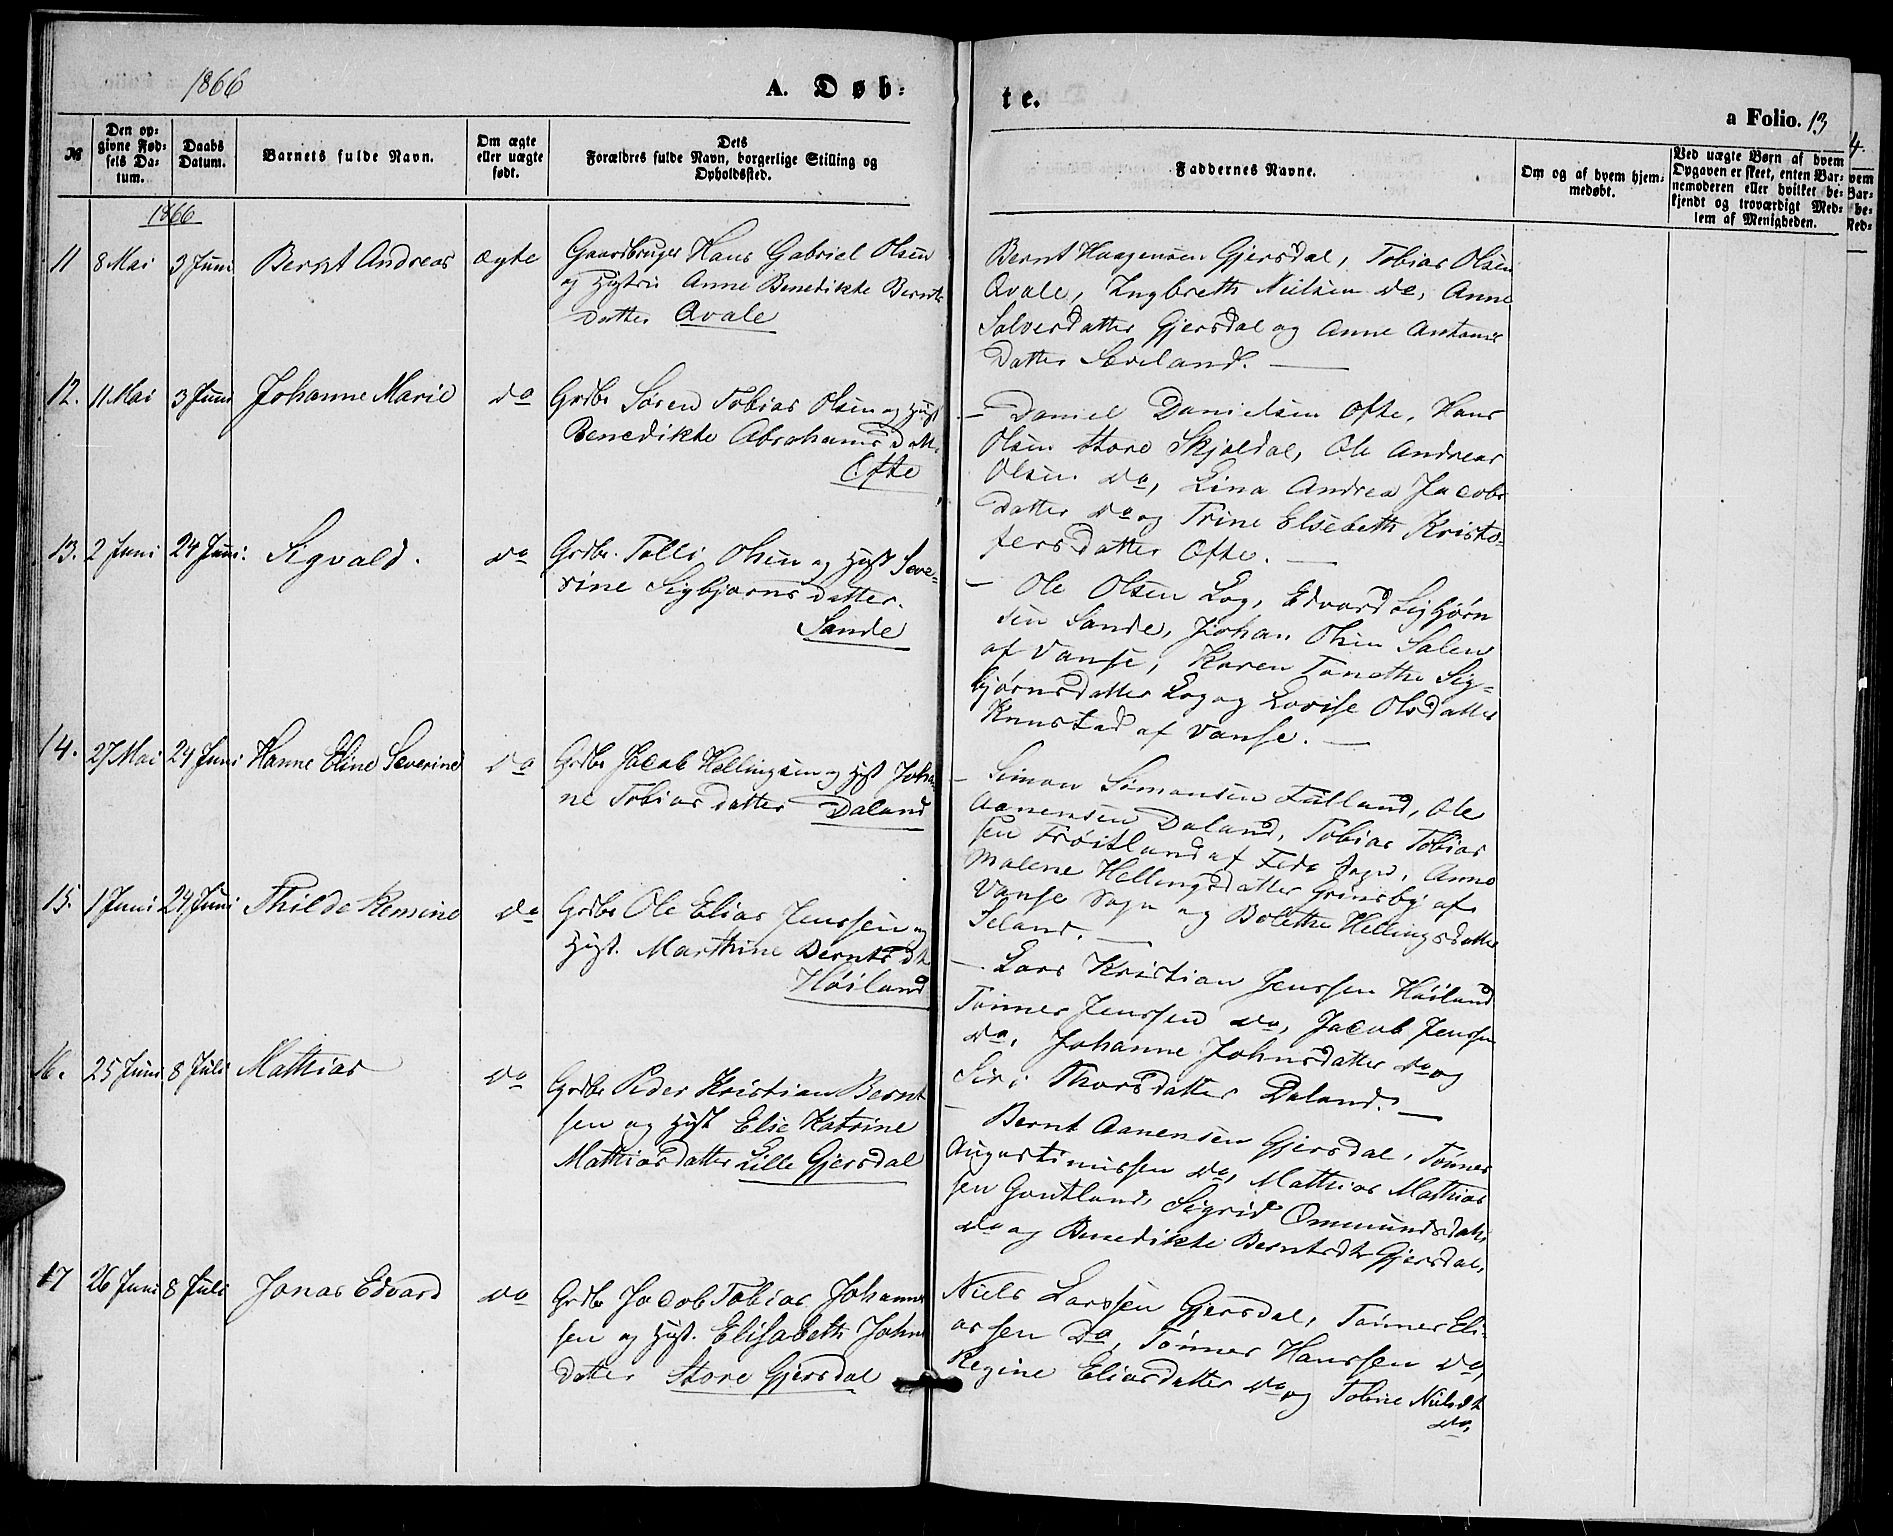 1866
A. Døb-
te.
a Folio. 13
№
Den op-
givne Fød-
sels Da-
tum.
Daabs
Datum.
Barnets fulde Navn.
Om ægte
eller uægte
født.
Dets
Forældres fulde Navn, borgerlige Stilling og
Opholdssted.
Faddernes Navne.
Om og af hvem hjem-
medøbt.
Ved uægte Børn af hvem
Opgaven er skeet, enten Bar-
nemoderen eller hvilket be-
kjendt og troværdigt Med-
lem af Menigheden.
1866
11 8 Mai 3 Juni Bernt Andreas ægte Gaardbruger Hans Gabriel Olsen
og Hustrue Anne Benedikte Bernts
datter Qvale
Bernt Haagensen Gjersdal, Tobias Olsen
Qvale, Ingbreth Nielsen do, Anne
Salvesdatter Gjersdal og Anne Antonis
datter Sæveland. —
12. 11 Mai 3 Juni Johanne Marie do Grdbr Søren Tobias Olsen og Hust
Benedikte Abrahamsdatt.
Ofte
— Daniel Danielsen Ofte, Hans
Olsen Store Skjoldal, Ole Andreas
Olsen do, Lina Andrea Jacobs
datter do og Trine Elsebeth Kristo-
fersdatter Ofte. —
13. 2 Juni 24 Juni. Sigvald. do Grdbr. Tolli Olsen og Hust Seve-
rine Sigbjørnsdatter.
Sande
— Ole Olsen Log, Edvard Sigbjørn
sen Sande, Johan Olsen Salen
af Vanse, Karen Tonethe Sig-
bjørnsdatter Log og Lovise Olsdatter
Knustad af Vanse. —
14. 27 Mai 24 Juni Hanne Eline Severine do Grdbr Jacob Hellingsen og Hust Johan
ne Tobiasdatter Daland
— Simon Simonsen Fulland, Ole
Aanensen Daland, Tobias Tobias
sen Frøitland af Feda Sogn, Anne
Malene Hellingsdatter Grimsby af
Vanse Sogn og Bolethe Hellingsdatter
Seland. —
15. 1 Juni 24 Juni Thilde Remine do Grdbr Ole Elias Jenssen og
Hust. Marthine Berntsdt
Høiland
— Lars Kristian Jenssen Høiland
Tønnes Jenssen do, Jacob Jenssen
do, Johanne Johnsdatter do og
Siri Thorsdatter Daland. —
16. 25 Juni 8 Juli Mathias do Grdbr Peder Kristian Bernt
sen og Hust Else Katrine
Mathiasdatter Lille Gjersdal
— Bernt Aanensen Gjersdal, Tønnes
Augustinussen do, Mathias Mathias
sen Goutland, Sigrid Ommundsdatt.
do og Benedikte Berntsdt Gjersdal,
17 26 Juni 8 Juli Jonas Edvard do Grdbr Jacob Tobias Johannes
sen og Hust. Elisabeth Johns
datter Store Gjersdal
Niels Larssen Gjersdal, Tønnes Eli-
assen do, Tønnes Hanssen do,
Regine Eliasdatter do og Tobine Nielsdt
do,